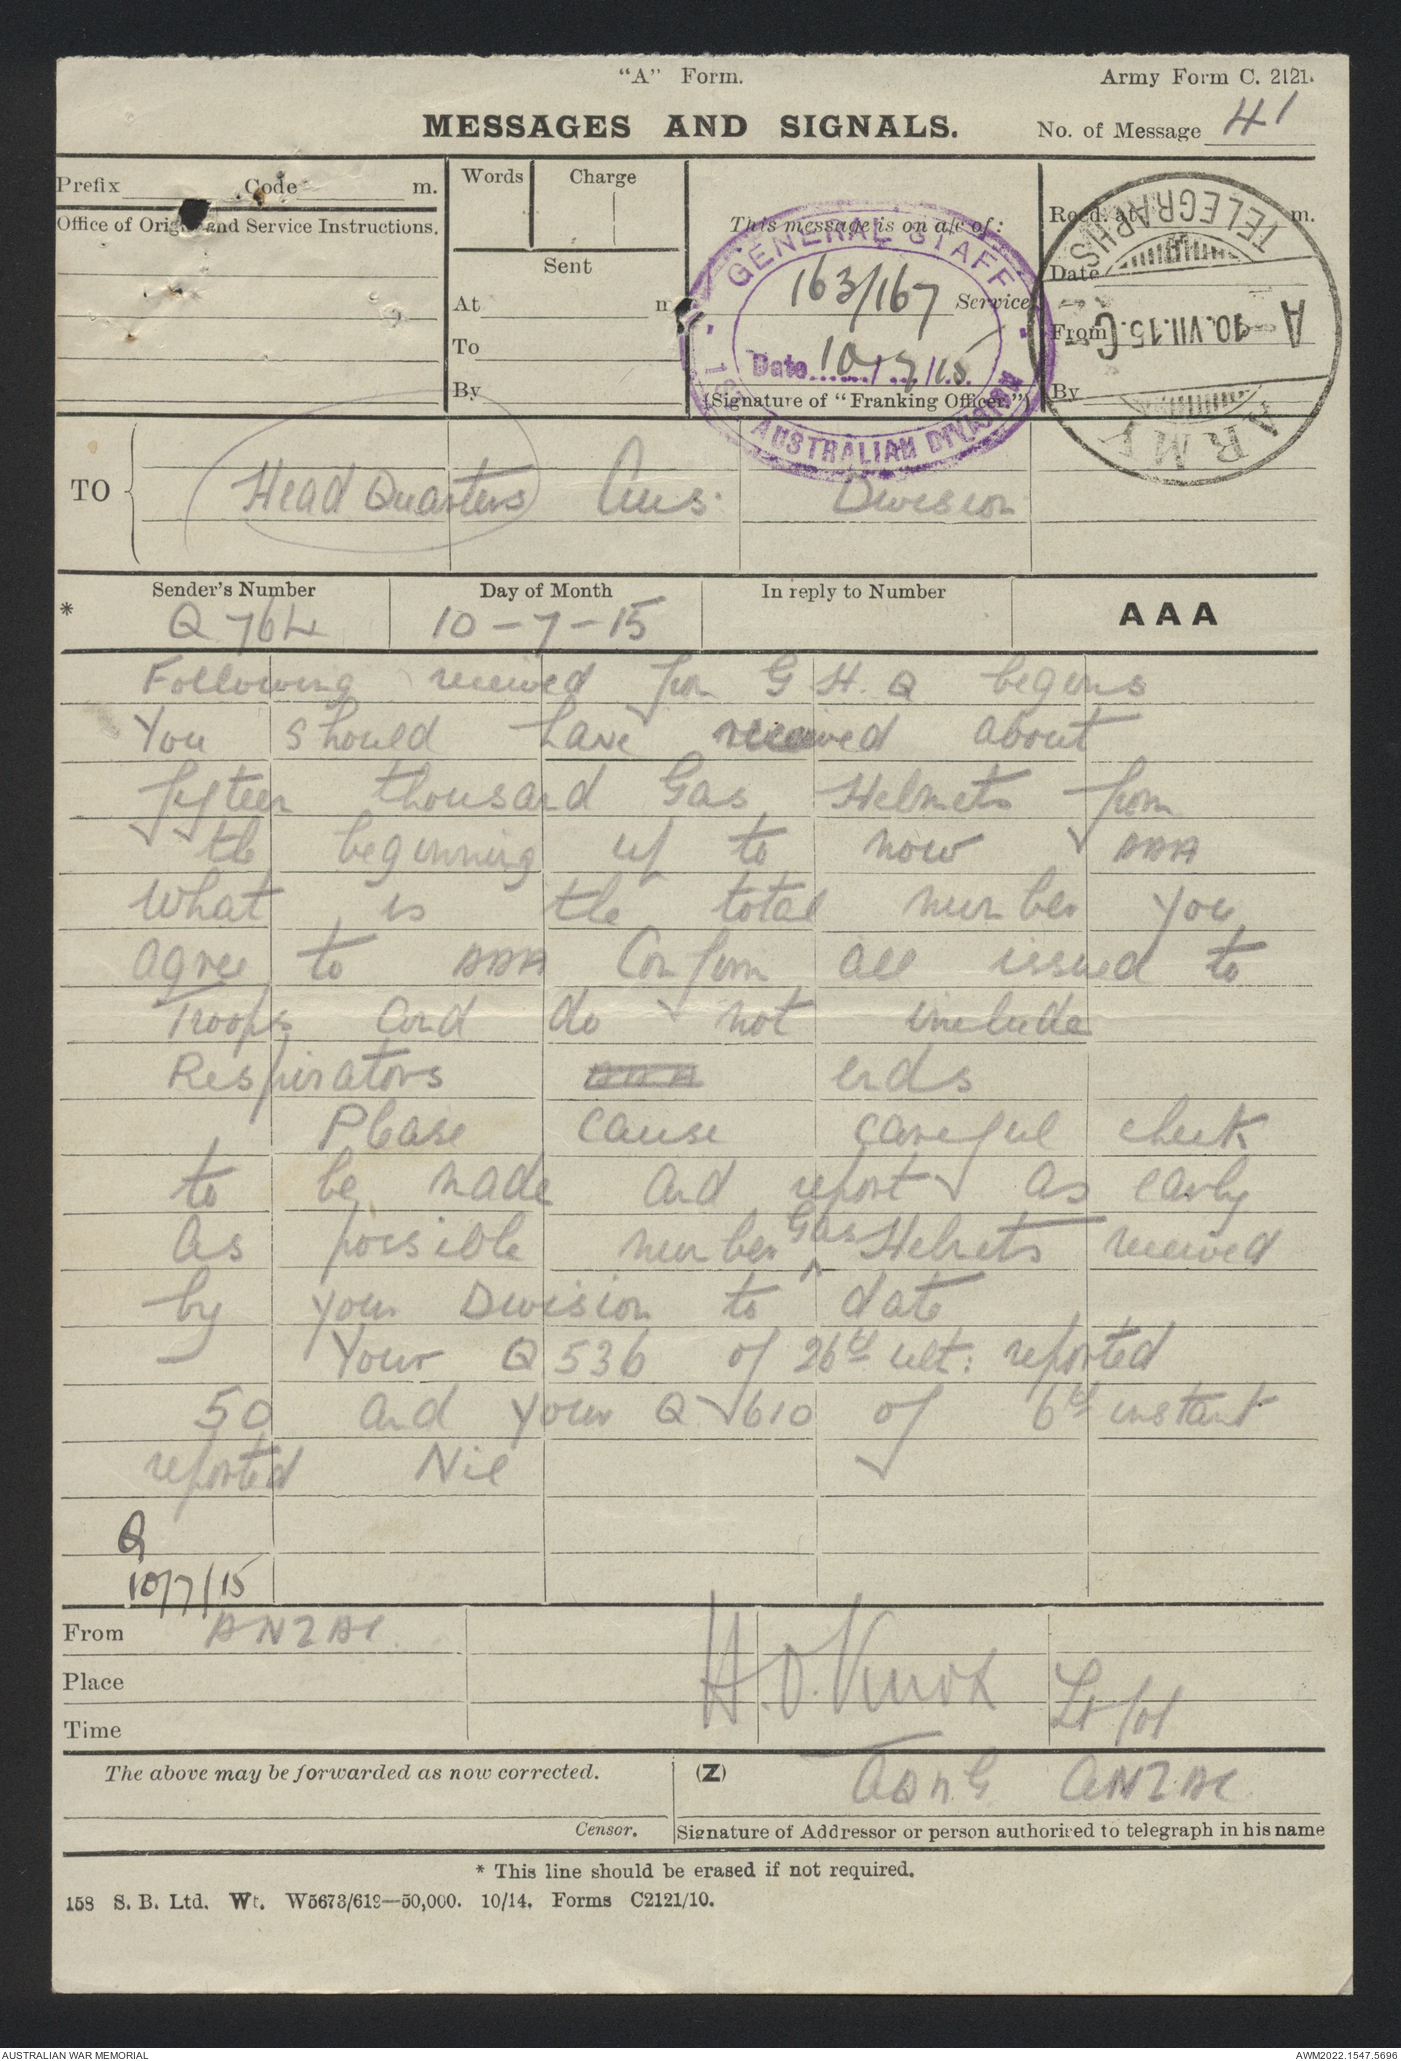 "A" Form.
Army Form C. 2121.
MESSAGES AND SIGNALS.
No. of Message 41
Prefix Code m.
Office of Origin and Service Instructions.
Words Charge
Sent
At m
To
By
This message is on a/c of:
Service
(Signature of "Franking Officer.")
GENERAL STAFF
163/167
Date 10/7/15
1ST AUSTRALIAN DIVISION
Recd. at m.
Date
From
By
ARMY TELEGRAPHS
10.VII.15.
TO Head Quarters Aus. Division
Sender's Number Day of Month In reply to Number AAA
* Q 764 10-7-15
Following received from G.H.Q begins
You should have received about
fifteen thousand Gas Helmets from
the beginning up to now AAA
What is the total number you
agree to AAA Confirm all issued to
Troops and do not include
Respirators AAA ends
Please cause careful check
to be made and report as early
as possible number Gas Helmets received
by your Division to date
Your Q 536 of 26th ult: reported
50 and your Q 610 of 6th instant
reported Nil
Q
10/7/15
From ANZAC
Place
Time
H.O. Knox Lt Col
The above may be forwarded as now corrected.
(Z) AQMG ANZAC
Censor.
Signature of Addressor or person authorised to telegraph in his name
* This line should be erased if not required.
158 S. B. Ltd. Wt. W5673/619—50,000. 10/14. Forms C2121/10.
AUSTRALIAN WAR MEMORIAL
AWM2022.1547.5696